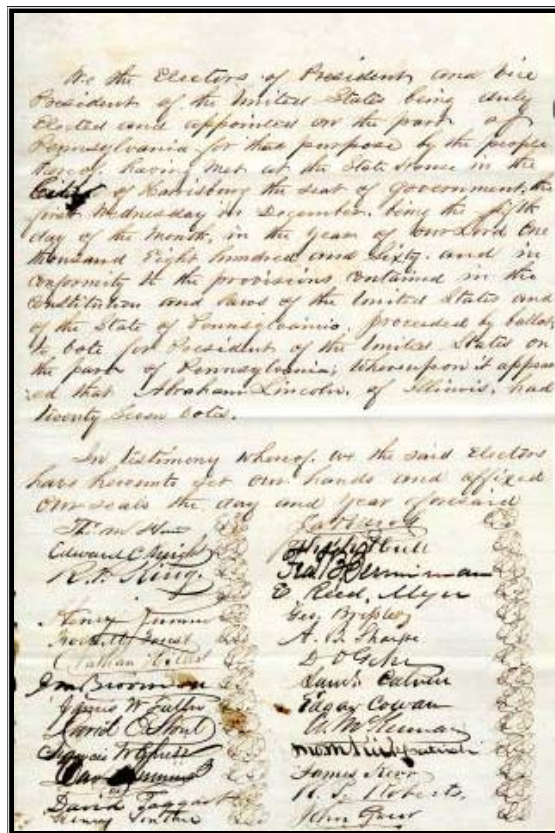 We the Electors of President and Vice
President of the United States being duly
Elected and appointed on the part of
Pennsylvania for that purpose by the people
thereof, having met at the State House in the
of Harrisburg the seat of Government, the
first Wednesday in December, being the fifth
day of the Month, in the year of our Lord One
thousand Eight hundred and Sixty, and in
conformity to the provisions contained in the
Constitution and laws of the United States and
of the State of Pennsylvania, proceeded by ballot
to vote for President of the United States on
the part of Pennsylvania; whereupon it appear
ed that Abraham Lincoln, of Illinois, had
twenty seven votes.
In testimony whereof, we the said Electors
have hereunto set our hands and affixed
our seals the day and year aforesaid
Edward C Knight
R. P. King.
Henry
Nathan Hills
James W. Fuller
David E Stout
Francis W
David
David Taggart
E Reed, Myer
Geo. Bressler
A. B. Sharpe
D O Gehr
Saml. Calvin
Edgar Cowan
Wm M Kirkpatrick
James Kerr
R. L. Roberts,
John Greer